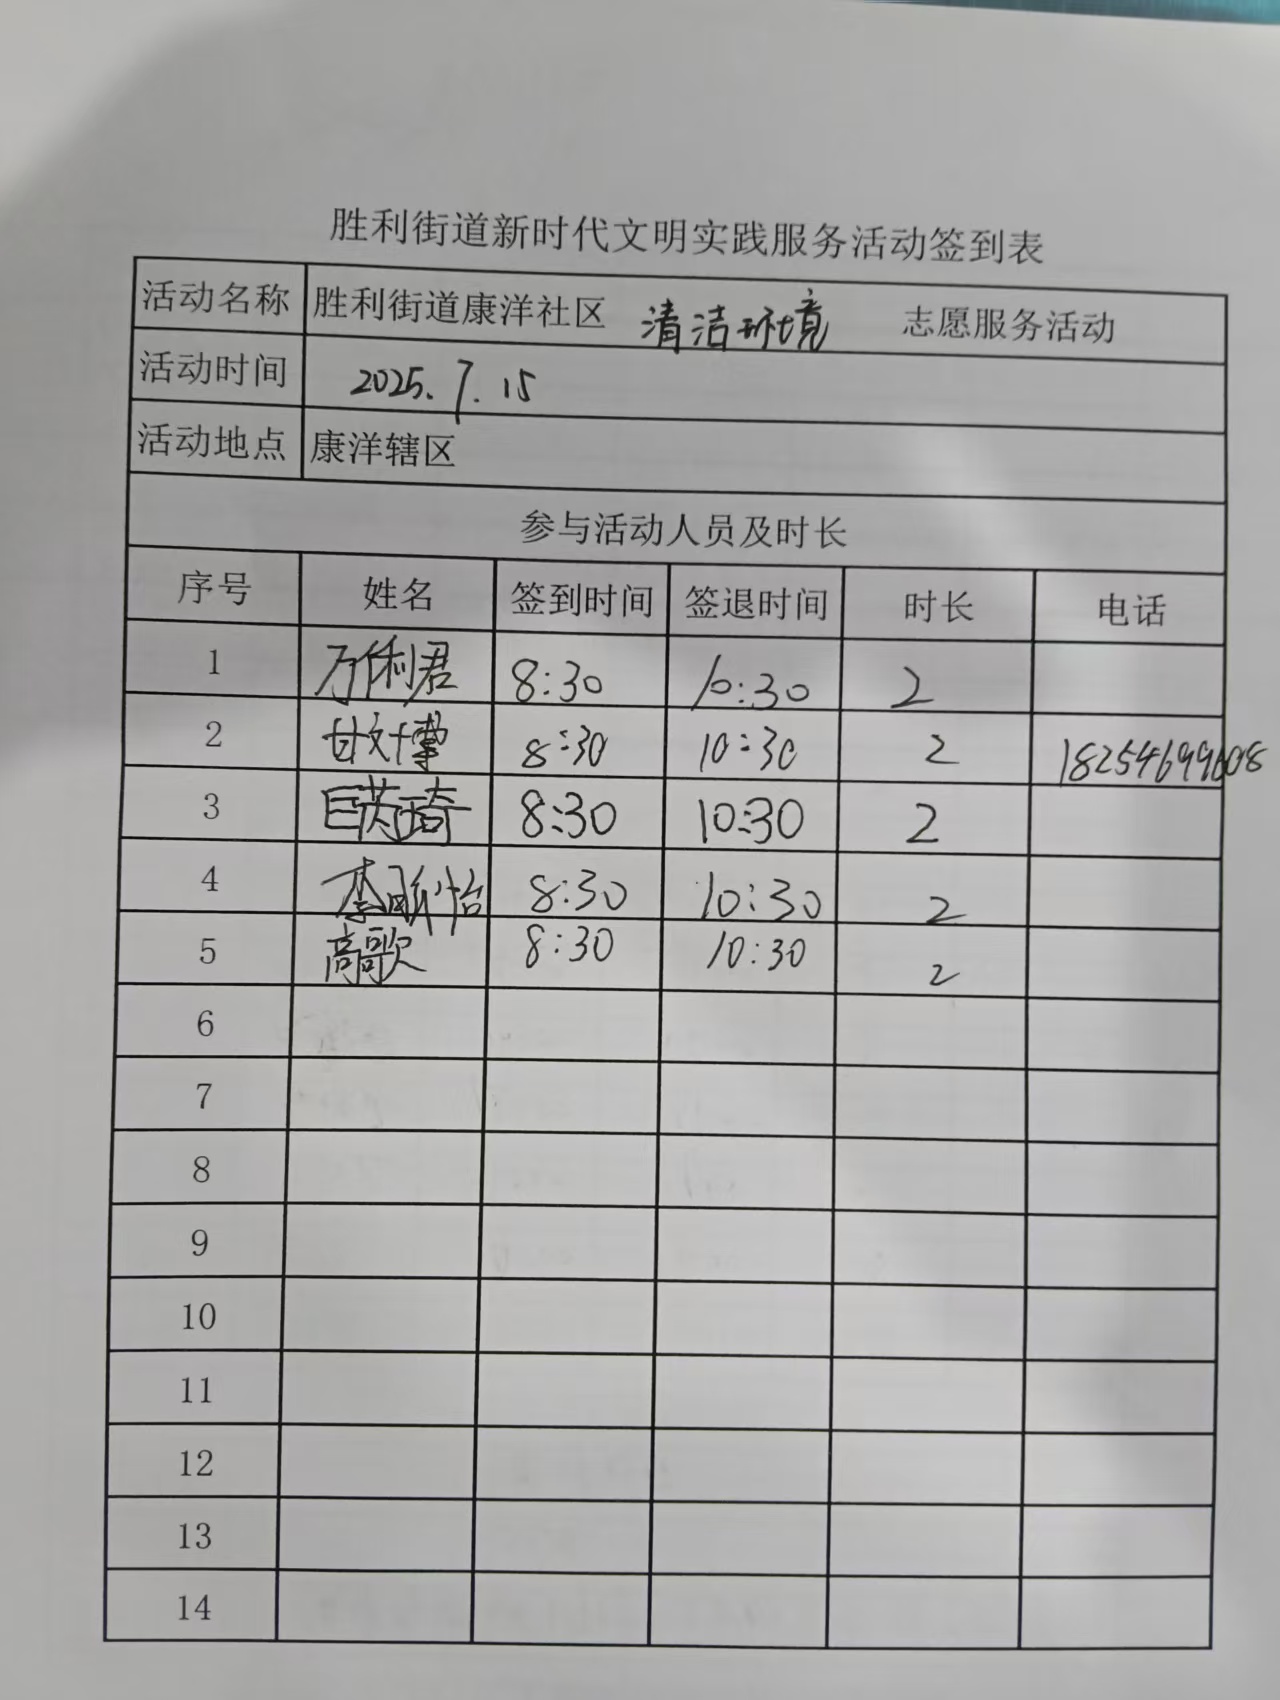 胜利街道新时代文明实践服务活动签到表
活动名称 胜利街道康洋社区 清洁环境 志愿服务活动
活动时间 2025.7.15
活动地点 康洋辖区
参与活动人员及时长
序号 姓名 签到时间 签退时间 时长 电话
1 万俐君 8:30 10:30 2
2 8:30 10:30 2
3 巨芮琦 8:30 10:30 2
4 8:30 10:30 2
5 高歌 8:30 10:30 2
6
7
8
9
10
11
12
13
14